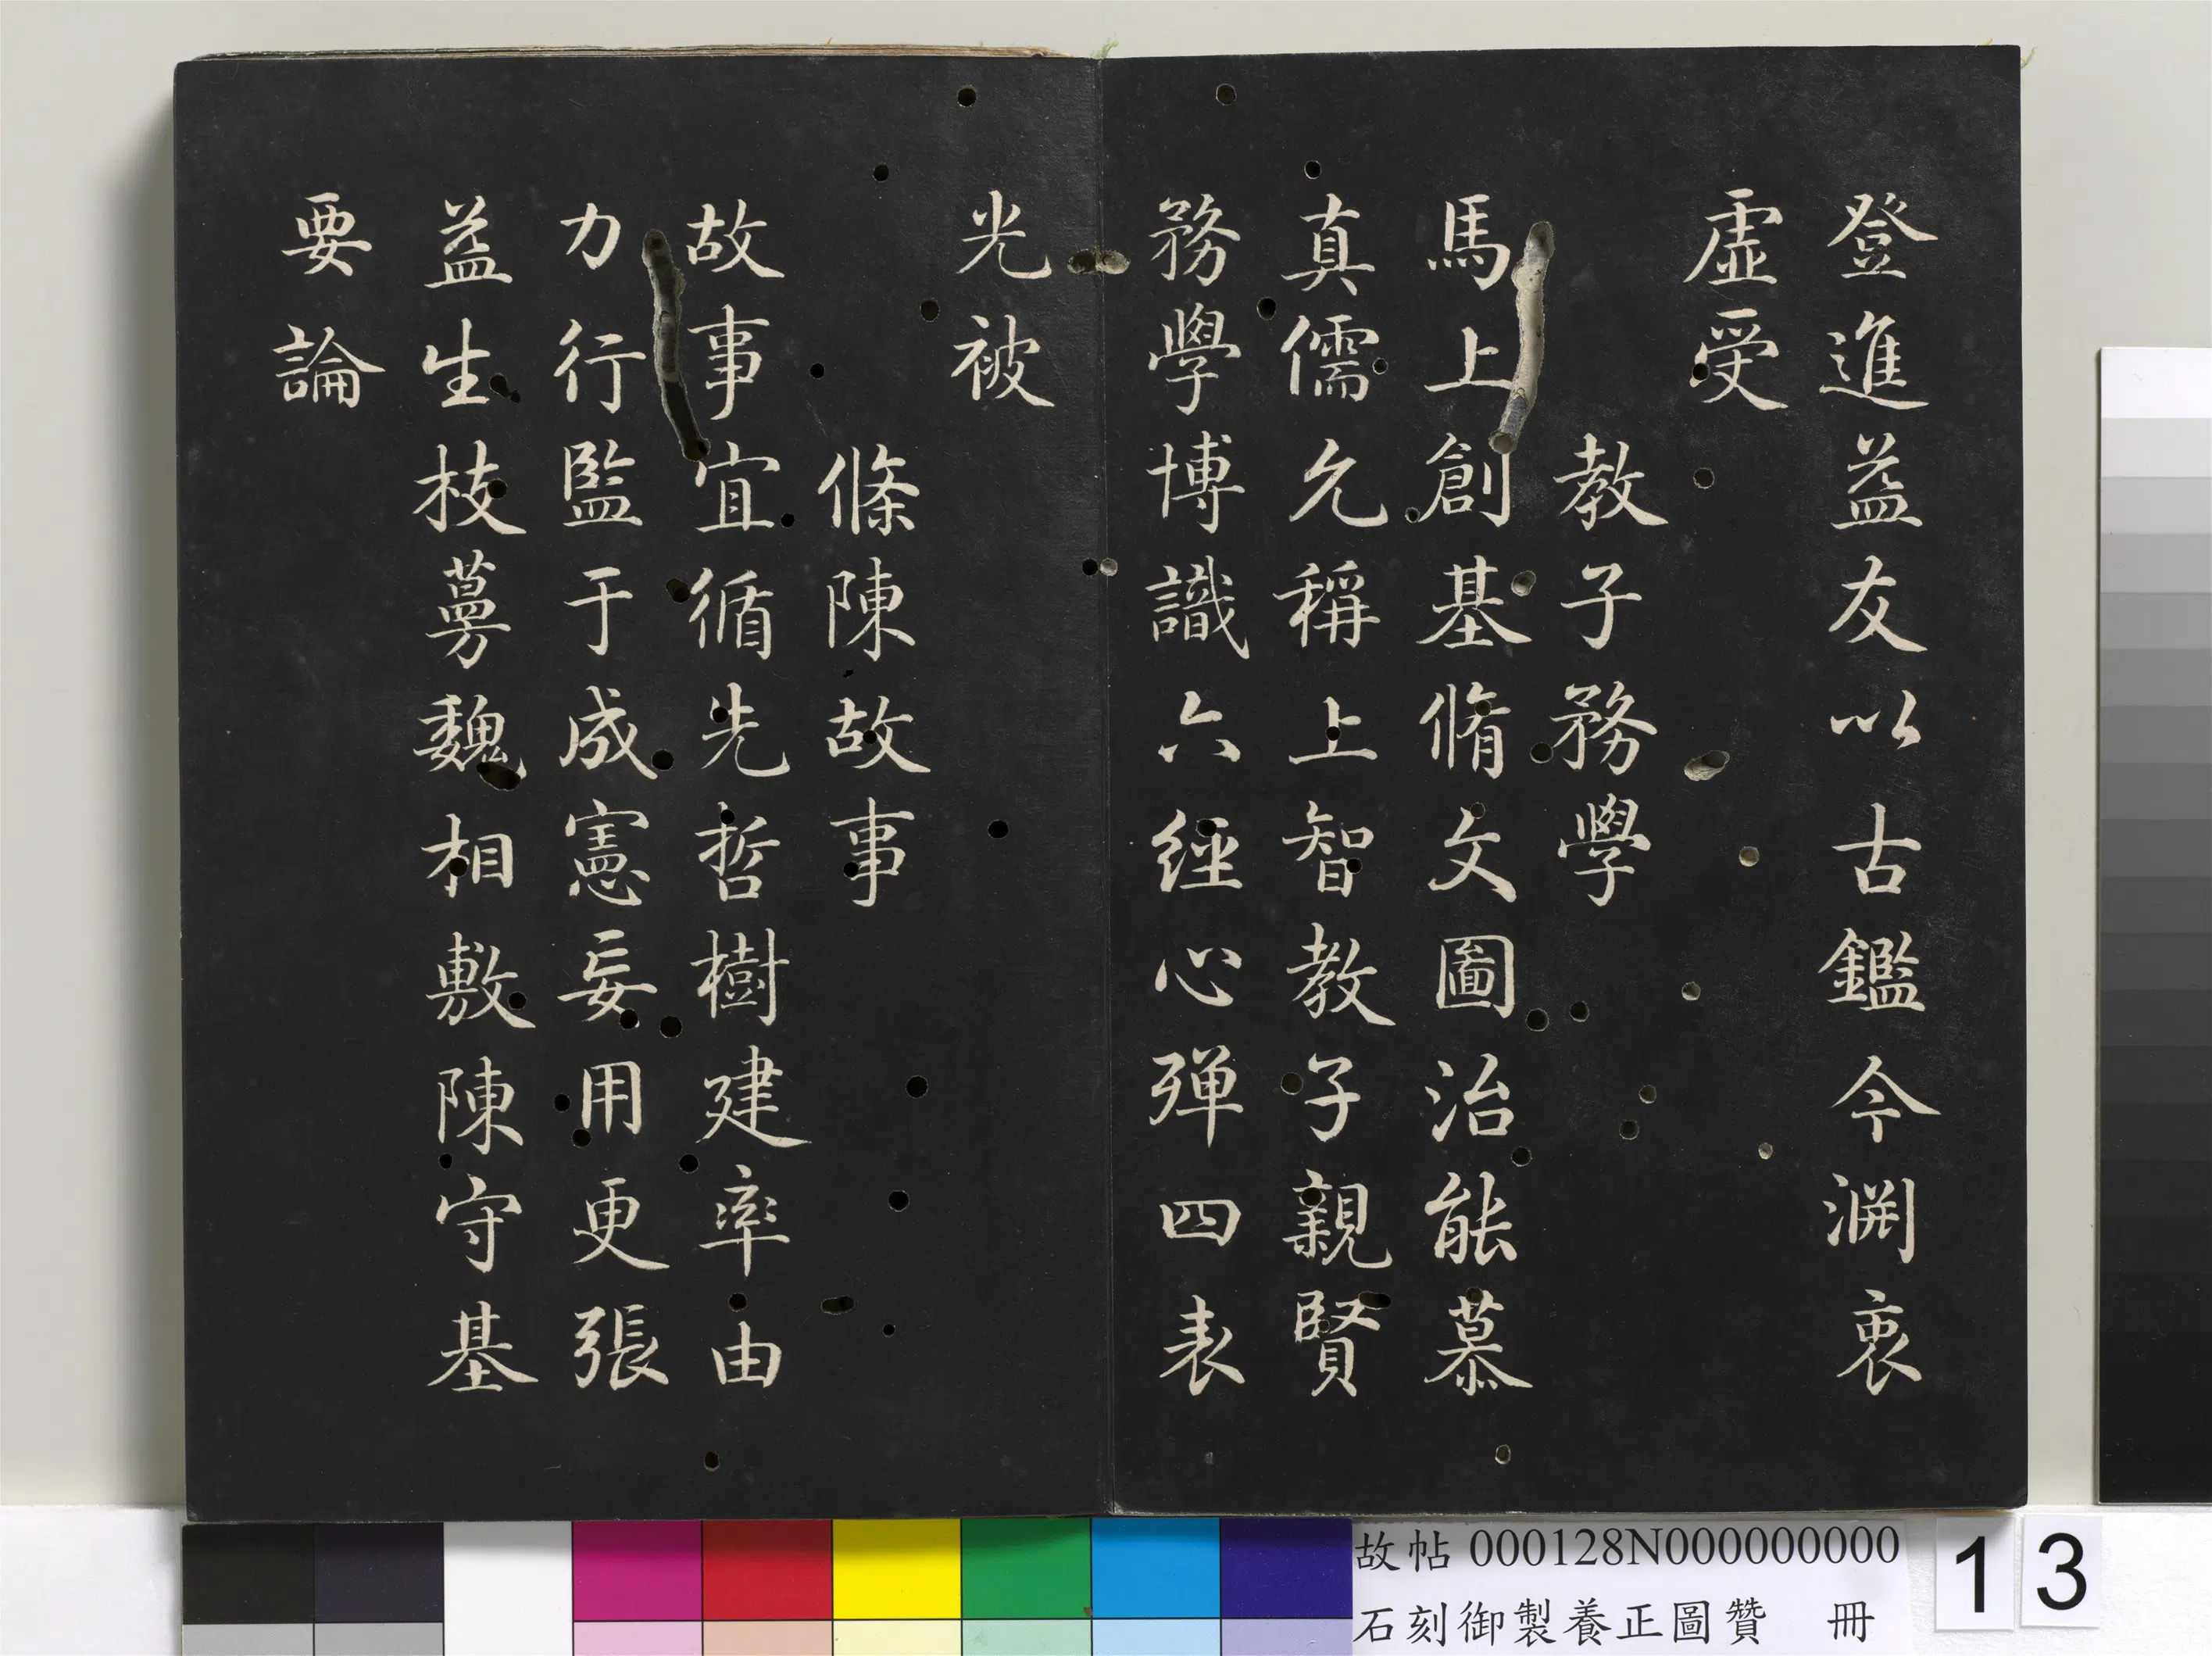 登進益友以古鑑今淵衷
虛受
教子務學
馬上創基脩文圖治能慕
真儒允稱上智教子親賢
務學博識六經心殫四表
光被
條陳故事
故事宜循先哲樹建率由
力行監于成憲妄用更張
益生枝蔓魏相敷陳守基
要論
故帖 000128N000000000
石刻御製養正圖贊 冊
13